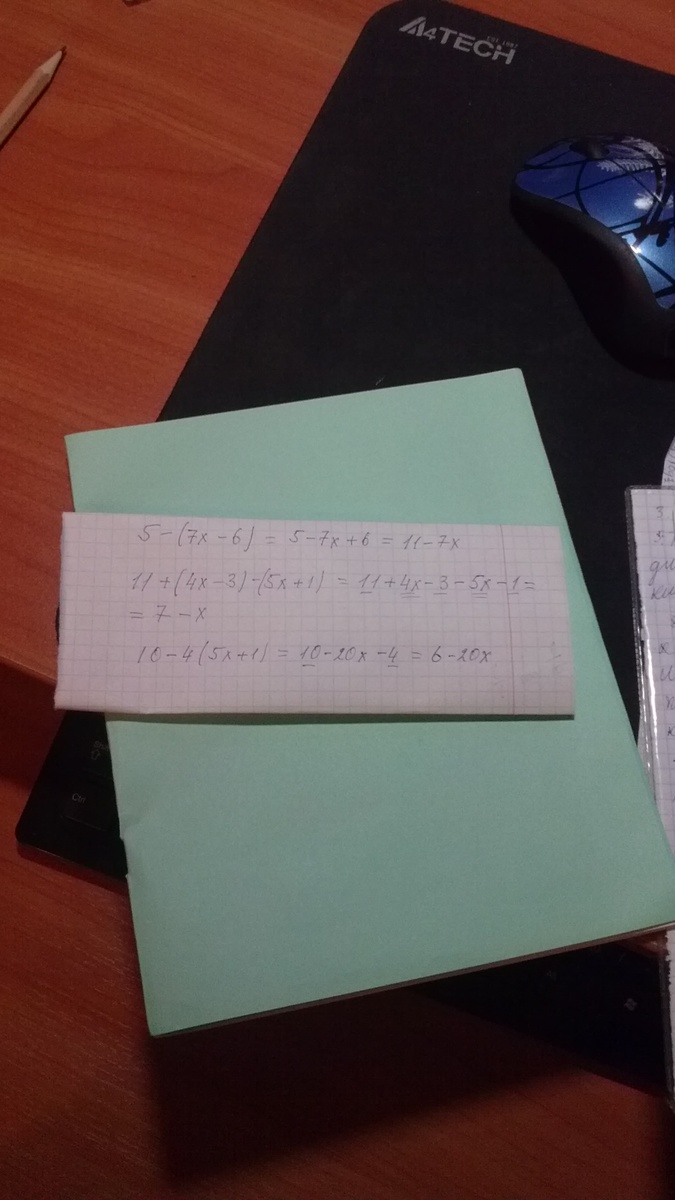 A4TECH
EST.1987
5-(7x-6) = 5-7x+6 = 11-7x
11+(4x-3)-(5x+1) = 11+4x-3-5x-1=
= 7-x
10-4(5x+1) = 10-20x-4 = 6-20x
Ctrl